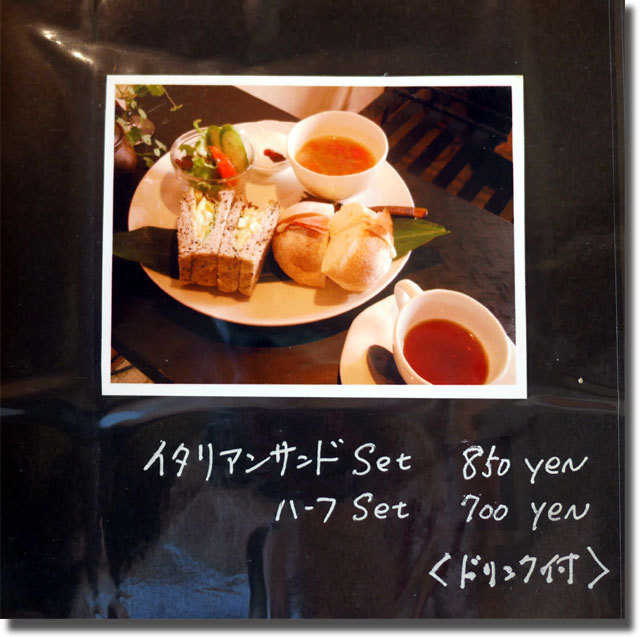 イタリアンサンド Set 850 yen
ハーフ Set 700 yen
<ドリンク付>